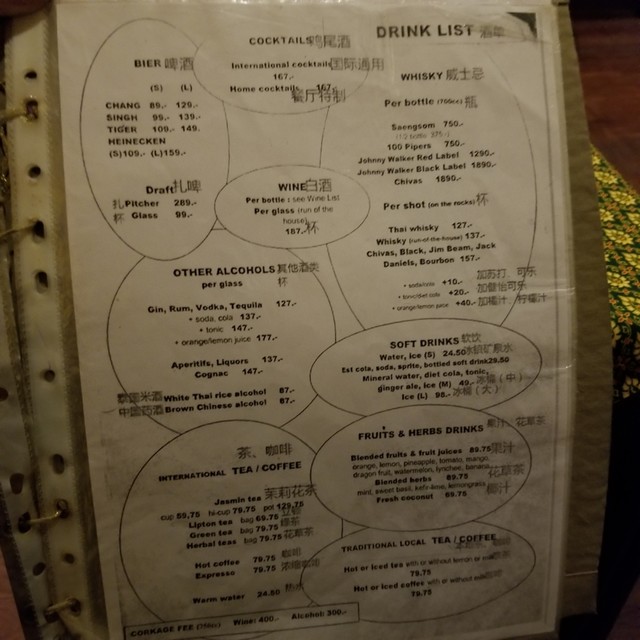 DRINK LIST 酒单
BIER 啤酒
(S) (L)
CHANG 89.- 129.-
SINGH 99.- 139.-
TIGER 109.- 149.
HEINEKEN
(S)109.- (L)159.-
Draft 扎啤
扎 Pitcher 289.-
杯 Glass 99.-
COCKTAILS 鸡尾酒
International cocktails 国际通用
167.-
Home cocktails 167.-
餐厅特制
WHISKY 威士忌
Per bottle (700cc) 瓶
Saengsom 750.-
(1/2 bottle 375.-)
100 Pipers 750.-
Johnny Walker Red Label 1290.-
Johnny Walker Black Label 1890.-
Chivas 1890.-
Per shot (on the rocks) 杯
Thai whisky 127.-
Whisky (run of the house) 137.-
Chivas, Black, Jim Beam, Jack
Daniels, Bourbon 157.-
+ soda/cola +10.- 加苏打、可乐
+ tonic/diet cola +20.-
+ orange/lemon juice +40.-
WINE 白酒
Per bottle ( see Wine List
Per glass (run of the
house)
187.- 杯
OTHER ALCOHOLS 其他酒类
per glass 杯
Gin, Rum, Vodka, Tequila 127.-
+ soda, cola 137.-
+ tonic 147.-
+ orange/lemon juice 177.-
Aperitifs, Liquors 137.-
Cognac 147.-
泰国米酒 White Thai rice alcohol 87.-
中国药酒 Brown Chinese alcohol 87.-
SOFT DRINKS 软饮
Water, ice (S) 24.50
Est cola, soda, sprite, bottled soft drink 29.50
Mineral water, diet cola, tonic,
ginger ale, Ice (M) 49.- 冰桶 (中)
Ice (L) 98.- 冰桶 (大)
FRUITS & HERBS DRINKS 果汁、花草茶
Blended fruits & fruit juices 89.75 果汁
orange, lemon, pineapple, tomato, mango,
dragon fruit, watermelon, lynchee, banana
Blended herbs 89.75 花草茶
mint, sweet basil, kefir-lime, lemongrass
Fresh coconut 69.75 椰汁
茶、咖啡
INTERNATIONAL TEA / COFFEE
Jasmin tea 茉莉花茶
cup 59,75 hi-cup 79.75 pot 129.75
Lipton tea bag 69.75
Green tea bag 79.75 绿茶
Herbal teas bag 79.75 花草茶
Hot coffee 79.75 咖啡
Espresso 79.75 浓缩咖啡
Warm water 24.50 热水
TRADITIONAL LOCAL TEA / COFFEE
Hot or Iced tea with or without lemon or
79.75
Hot or Iced coffee with or without
79.75
CORKAGE FEE (750cc) Wine: 400.- Alcohol: 300.-